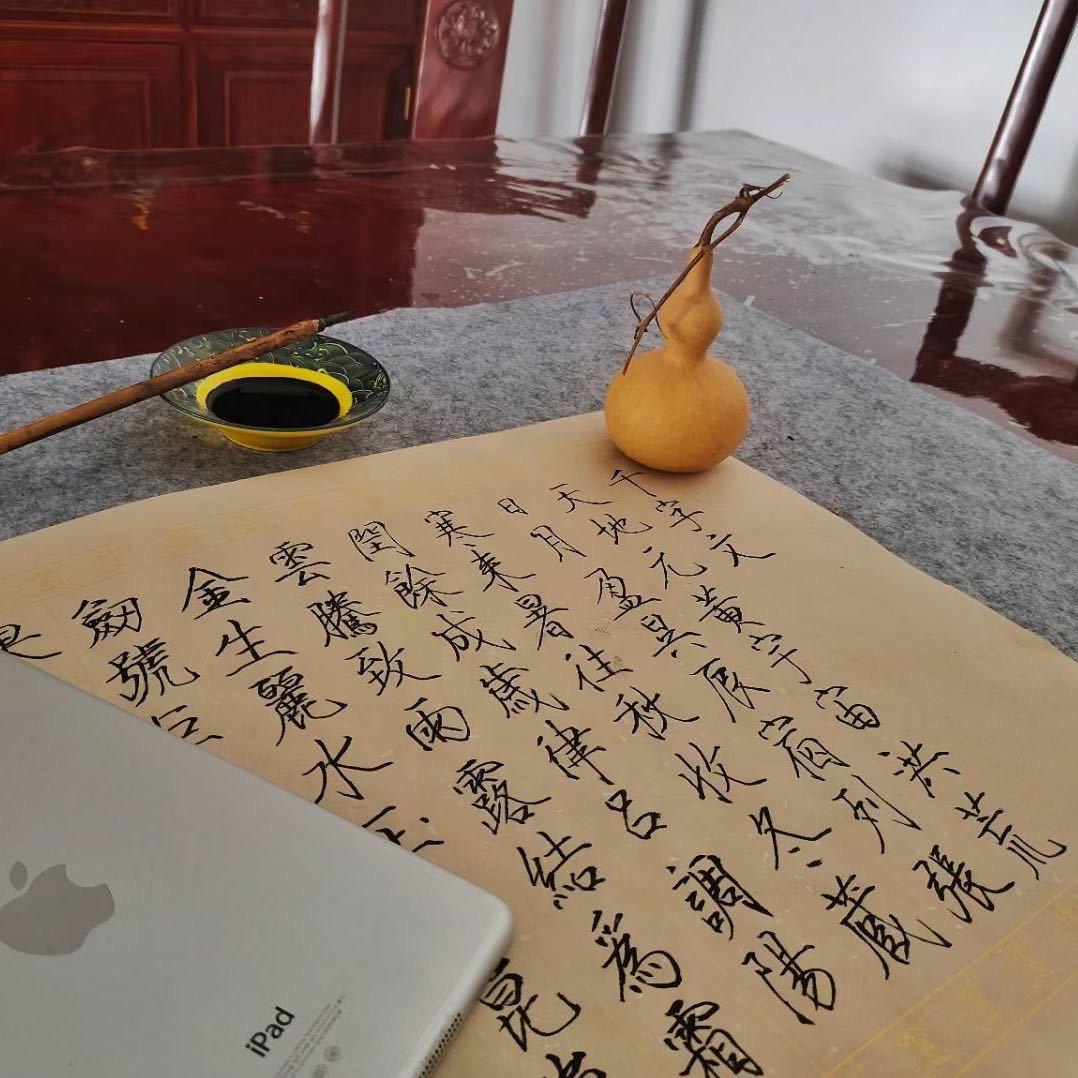 千字文
天地元黃宇宙洪荒
日月盈昃辰宿列張
寒来暑往秋收冬藏
閏餘成歲律呂調陽
雲騰致雨露結為霜
金生麗水玉
崑
劍號巨
iPad